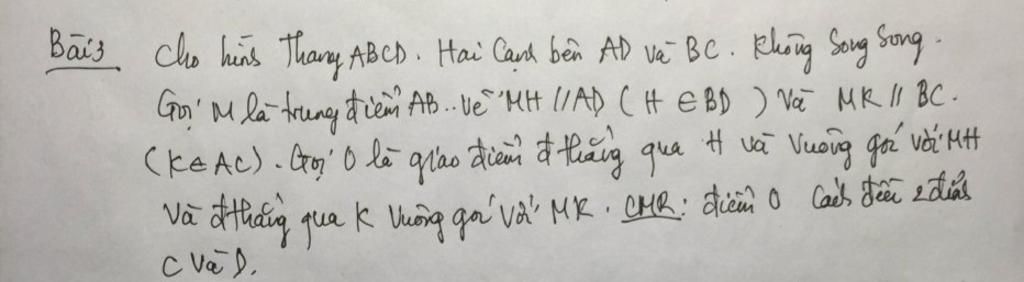 Bài3 Cho hình Thang ABCD. Hai Cạnh bên AD và BC. Không Song Song.
Gọi M là trung điểm AB.. Vẽ MH // AD ( H ∈ BD ) Và MK // BC.
(K ∈ AC). Gọi O là giao điểm đthẳng qua H và Vuông góc với MH
Và đthẳng qua K Vuông góc Với MK. CMR: điểm O Cách đều 2 đỉnh
C Và D.